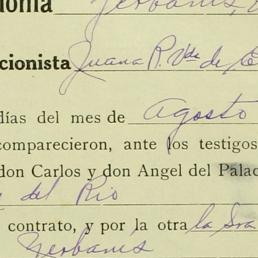 onia Yerbanis,
cionista Juana R. Vda de
días del mes de Agosto
comparecieron, ante los testigos
don Carlos y don Angel del Palac
del Rio
contrato, y por la otra la Sra
Yerbanis